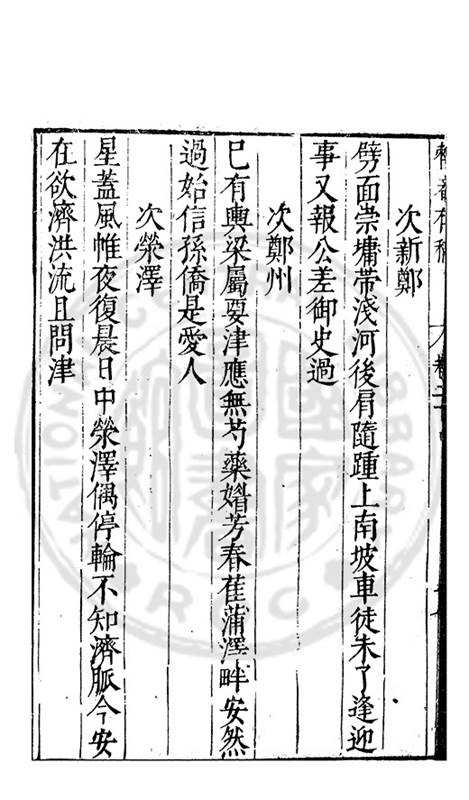 次新鄭
劈面崇墉帶淺河後肩隨踵上南坡車徒未了逢迎
事又報公差御史過
次鄭州
巳有輿梁屬要津應無芍藥婿芳春萑蒲澤畔安然
過始信孫僑是愛人
次滎澤
星蓋風帷夜復晨日中滎澤偶停輪不知濟脈今安
在欲濟洪流且問津